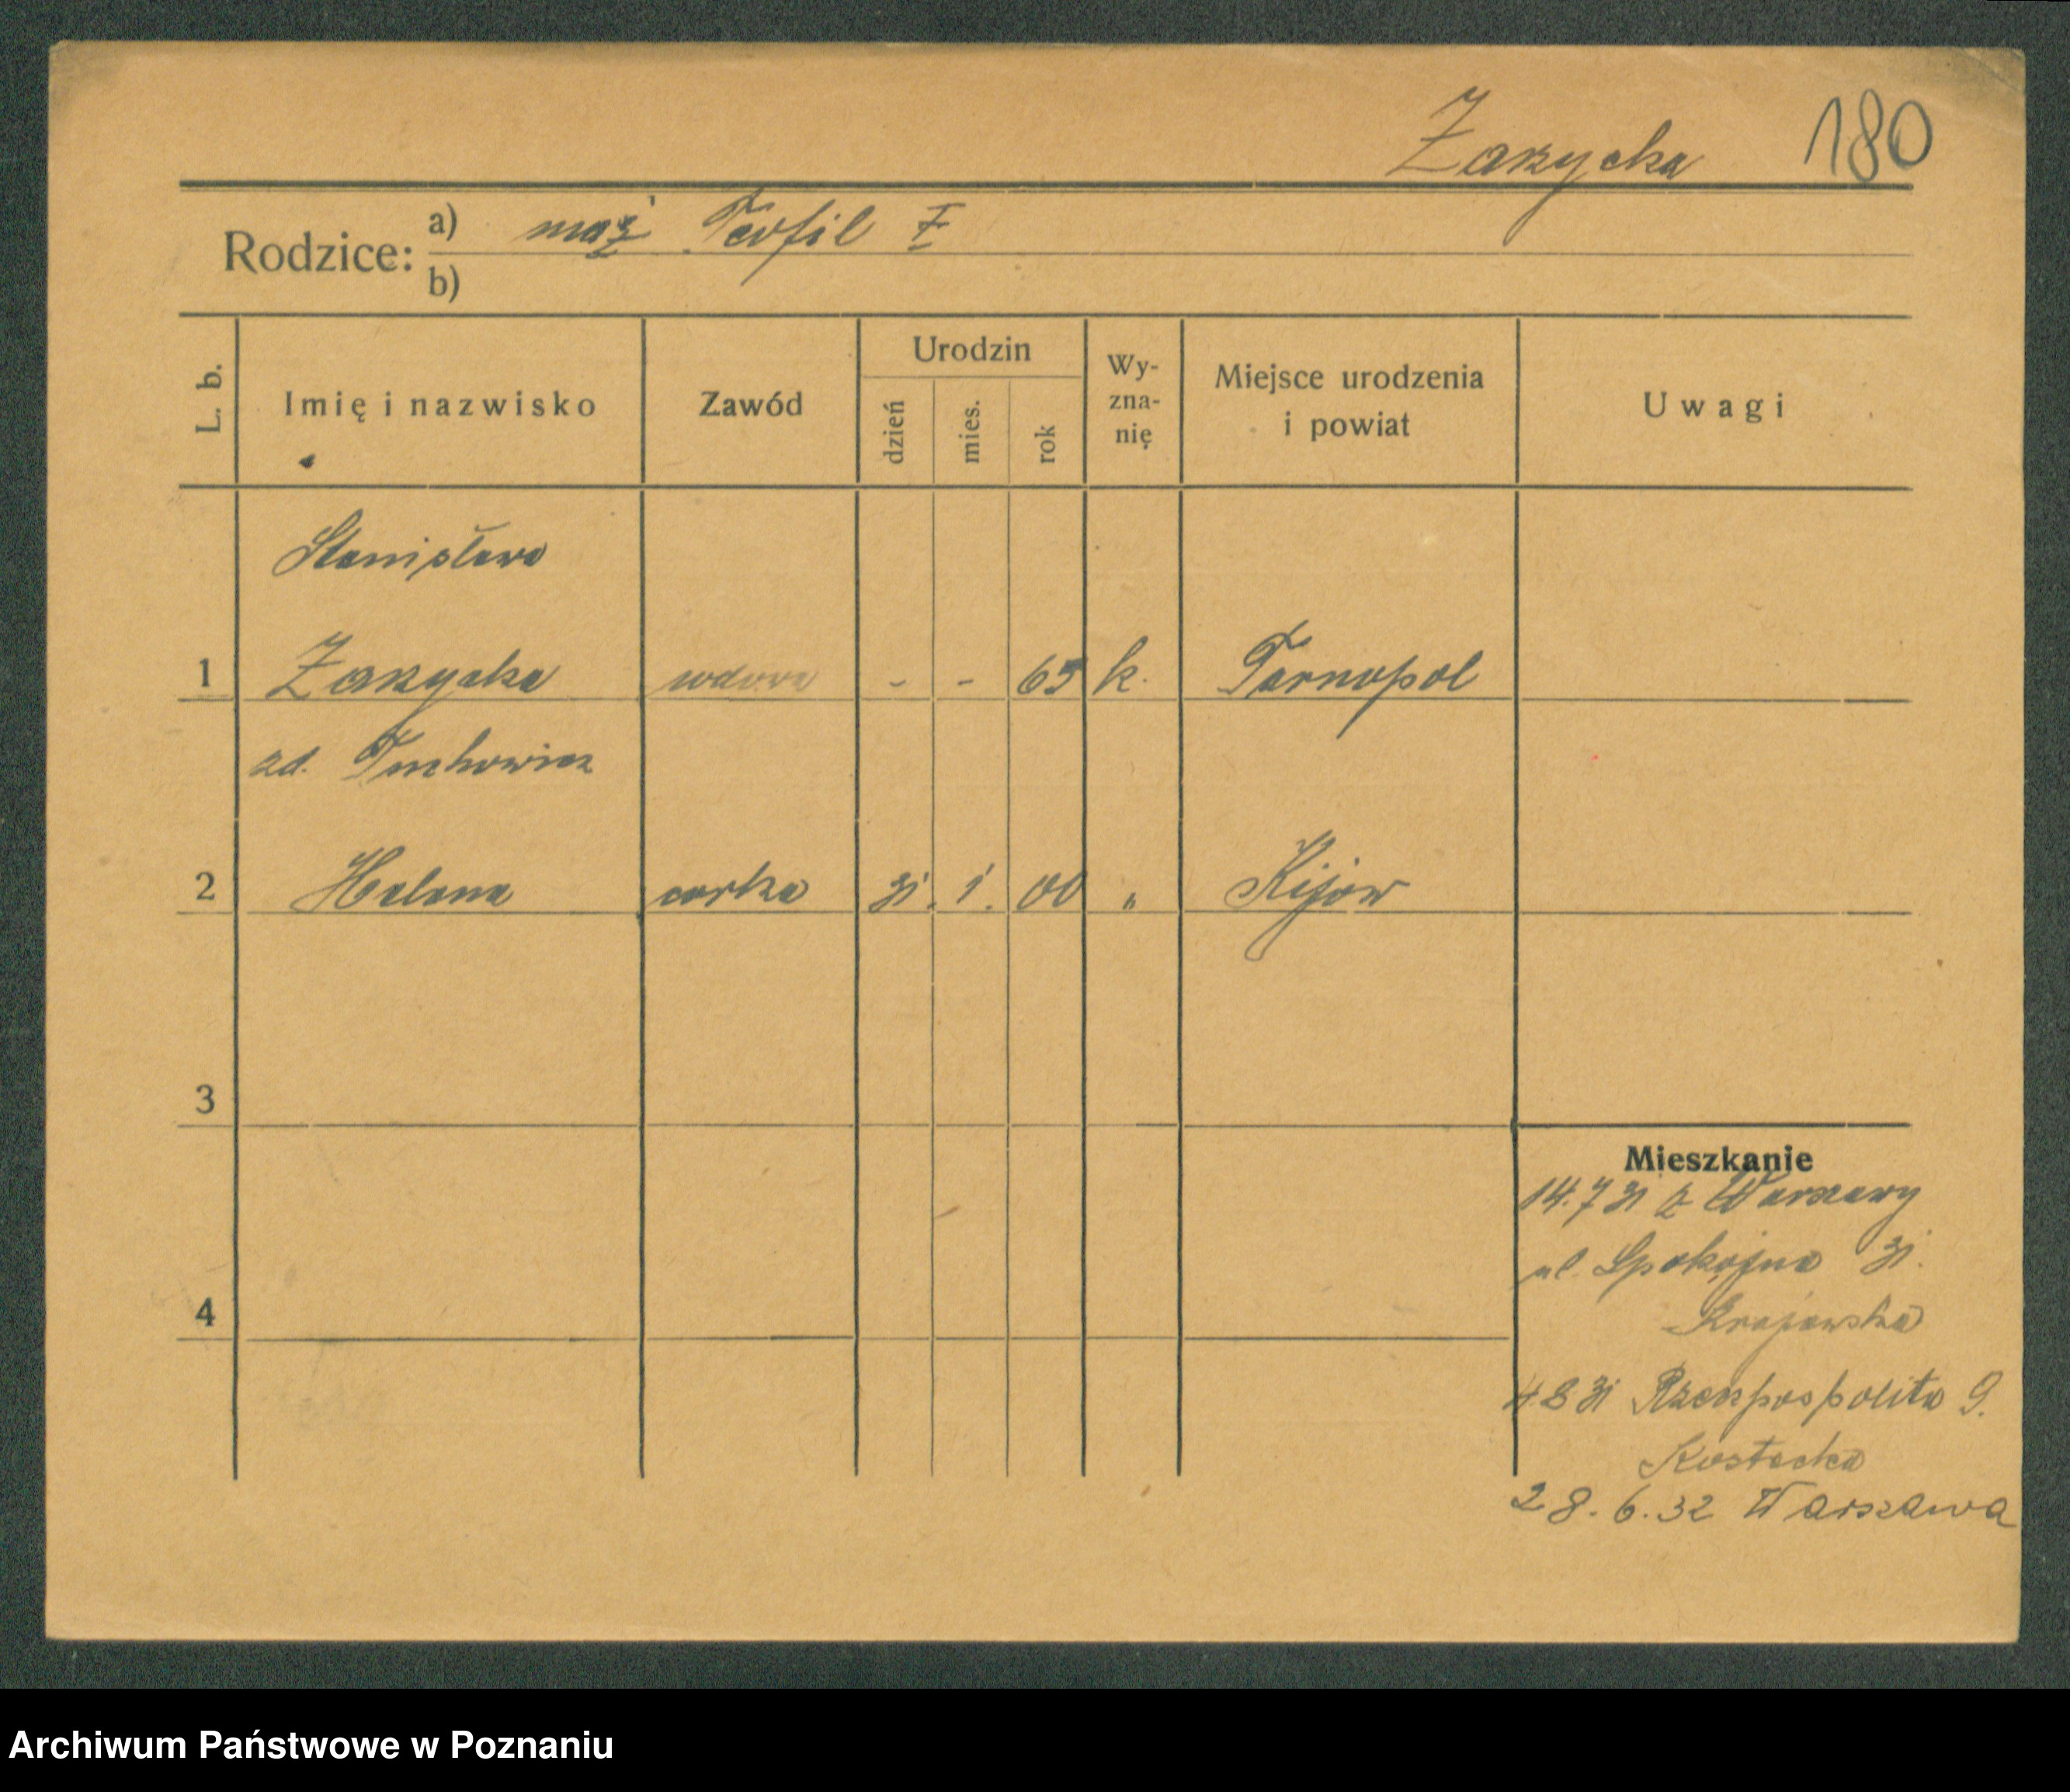 Zarzycka 180
Rodzice: a) mąż Teofil Ŧ
b)
L. b. Imię i nazwisko Zawód Urodzin dzień mies. rok Wy-zna-nię Miejsce urodzenia i powiat Uwagi
Stanisława
1 Zarzycka wdowa - - 65 k. Tarnopol
zd. Tuchowicz
2 Helena corka 31. 1. 00 " Kijow
3
Mieszkanie
14.7 31 z Warszawy
ul. Spokojna 31.
4 Krajewska
4 8 31 Rzeczpospolita 9.
Kostecka
28.6.32 Warszawa
Archiwum Państwowe w Poznaniu